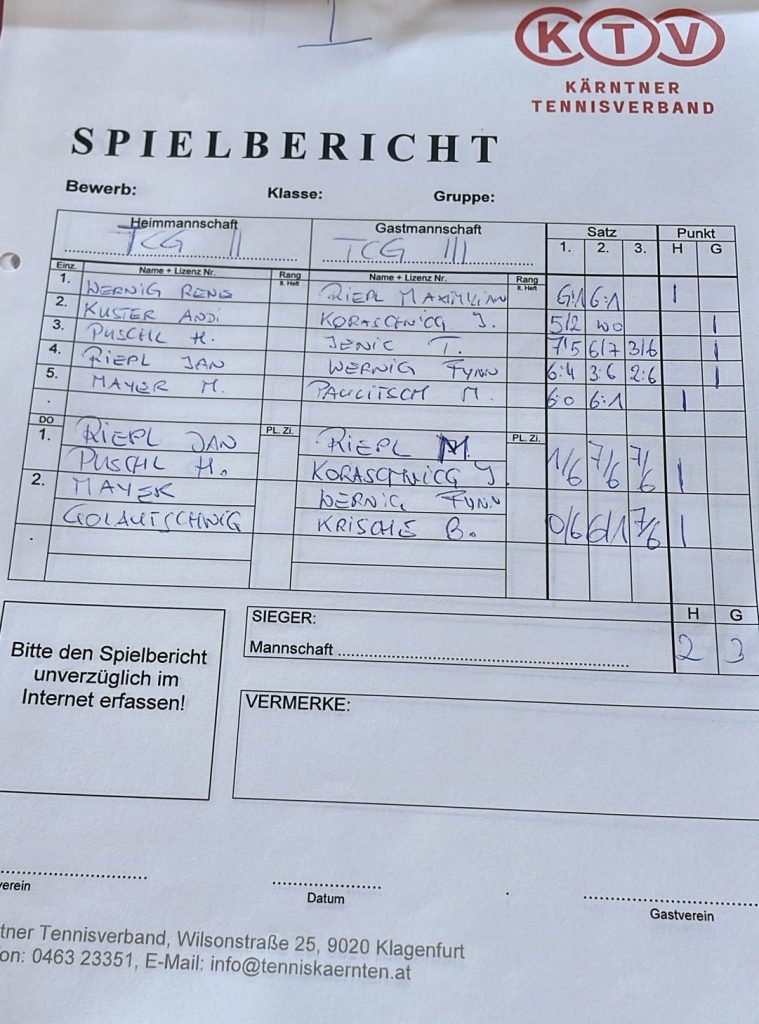 KTV
KÄRNTNER
TENNISVERBAND
SPIELBERICHT
Bewerb: Klasse: Gruppe:
Heimmannschaft Gastmannschaft Satz Punkt
TCG II TCG III 1. 2. 3. H G
Einz. Name + Lizenz Nr. Rang lt. Heft Name + Lizenz Nr. Rang lt. Heft
1. WERNIG RENE RIEPL MAXIMILIAN 6:1 6:1 I
2. KUSTER ANDI KORASCHNIGG J. 5/2 WO I
3. PUSCHL H. JENIC T. 7:5 6/7 3/6 I
4. RIEPL JAN WERNIG FYNN 6:4 3:6 2:6 I
5. MAYER M. PAULITSCH M. 6:0 6:1 I
.
DO PL. Zi. PL. Zi.
1. RIEPL JAN RIEPL M. 1/6 7/6 7/6 I
PUSCHL H. KORASCHNIGG J
2. MAYER WERNIG FYNN 0/6 6/1 7/6 I
GOLAUTSCHNIG KRISCHE B.
.
SIEGER: H G
Mannschaft 2 3
Bitte den Spielbericht
unverzüglich im
Internet erfassen!
VERMERKE:
verein Datum Gastverein
tner Tennisverband, Wilsonstraße 25, 9020 Klagenfurt
fon: 0463 23351, E-Mail: info@tenniskaernten.at